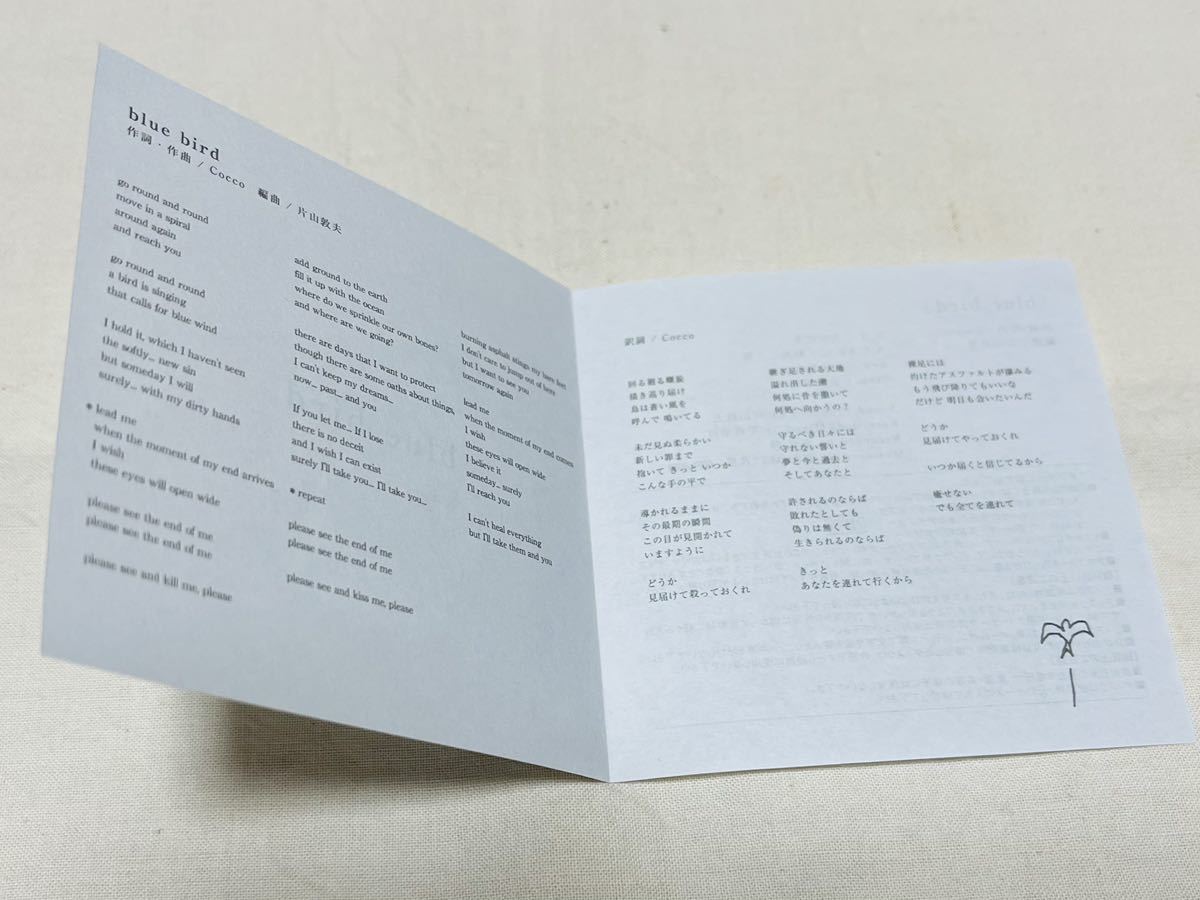 blue bird
作詞・作曲 / Cocco 編曲 / 片山敦夫
go round and round
move in a spiral
around again
and reach you
go round and round
a bird is singing
that calls for blue wind
I hold it, which I haven't seen
the softly... new sin
but someday I will
surely... with my dirty hands
* lead me
when the moment of my end arrives
I wish
these eyes will open wide
please see the end of me
please see the end of me
please see and kill me, please
add ground to the earth
fill it up with the ocean
where do we sprinkle our own bones?
and where are we going?
there are days that I want to protect
though there are some oaths about things,
I can't keep my dreams...
now... past... and you
If you let me... If I lose
there is no deceit
and I wish I can exist
surely I'll take you... I'll take you...
* repeat
please see the end of me
please see the end of me
please see and kiss me, please
burning asphalt stings my bare feet
I don't care to jump out of here
but I want to see you
tomorrow again
lead me
when the moment of my end comes
I wish
these eyes will open wide
I believe it
someday... surely
I'll reach you
I can't heal everything
but I'll take them and you
訳詞 / Cocco
回る廻る螺旋
描き巡り届け
鳥は蒼い風を
呼んで 鳴いてる
未だ見ぬ柔らかい
新しい罪まで
抱いて きっと いつか
こんな手の平で
導かれるままに
その最期の瞬間
この目が見開かれて
いますように
どうか
見届けて殺っておくれ
継ぎ足される大地
溢れ出した潮
何処に骨を撒いて
何処へ向かうの?
守るべき日々には
守れない誓いと
夢と今と過去と
そしてあなたと
許されるのならば
敗れたとしても
偽りは無くて
生きられるのならば
きっと
あなたを連れて行くから
裸足には
灼けたアスファルトが滲みる
もう飛び降りてもいいな
だけど 明日も会いたいんだ
どうか
見届けてやっておくれ
いつか届くと信じてるから
癒せない
でも全てを連れて